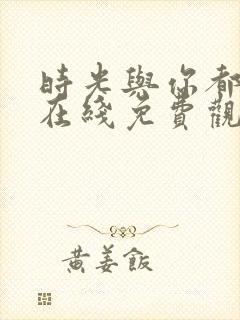 時光與你都
在綫免費觀
黄姜飯